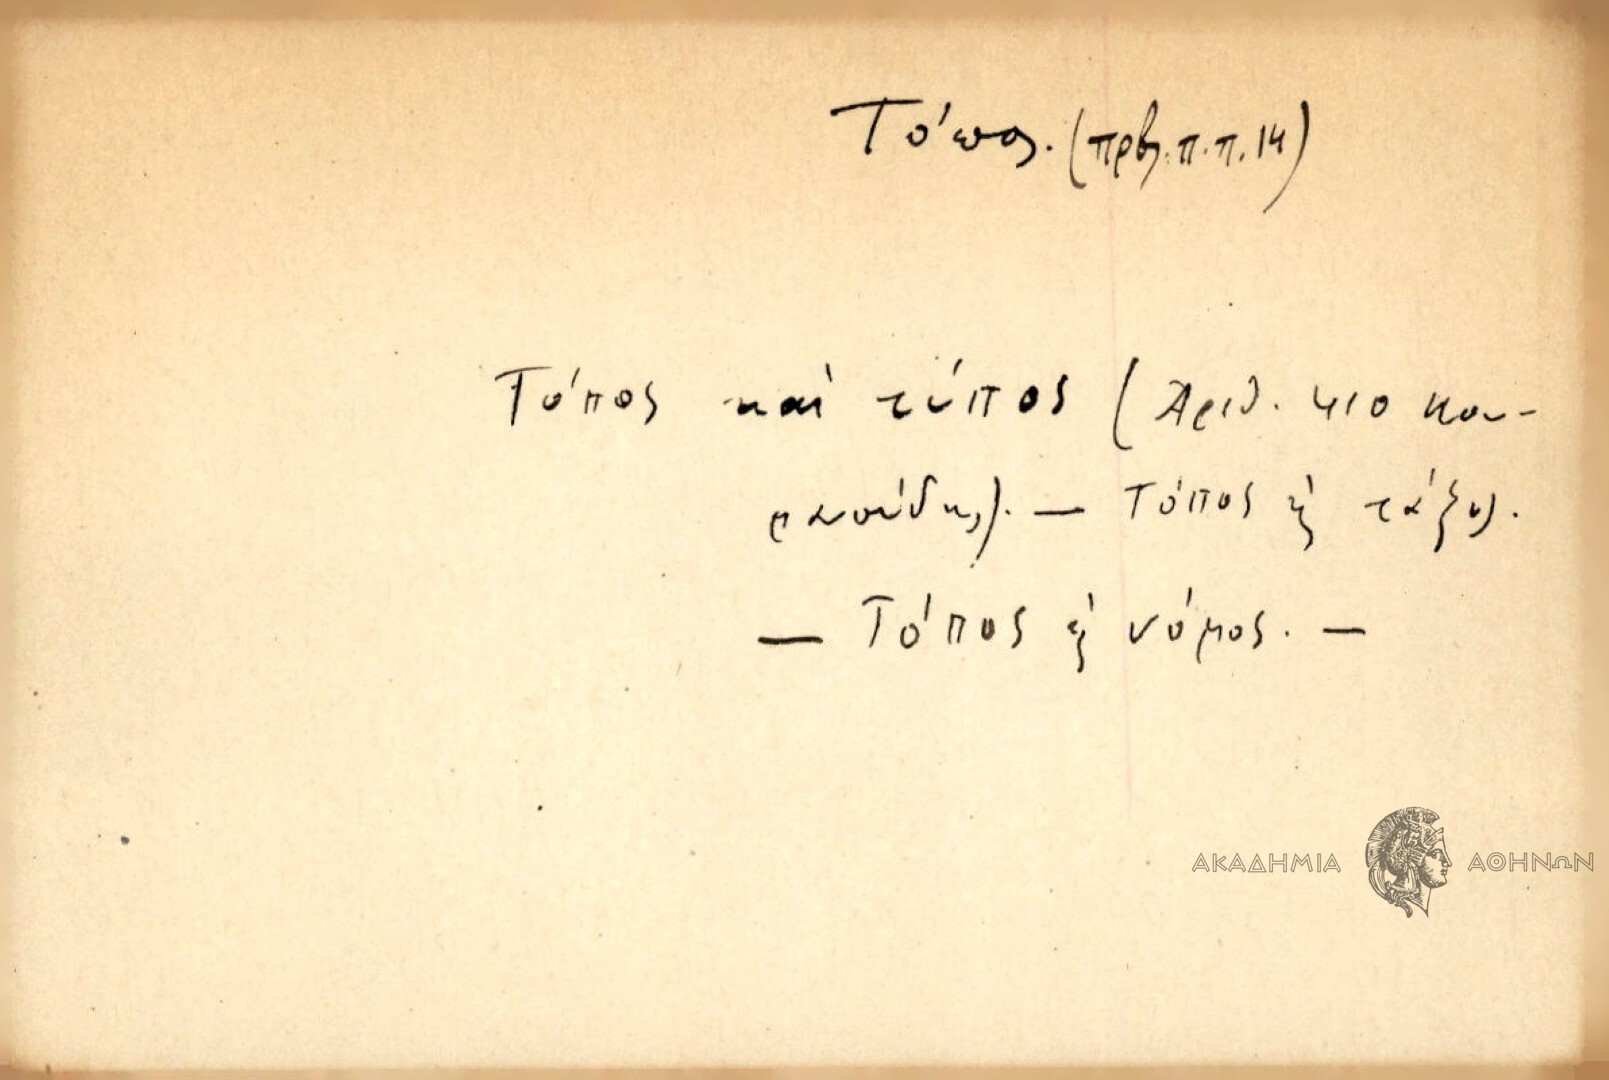 Τόπος. (πρβλ. π.π. 14)
Τόπος καὶ τύπος (Ἀριθ. 410 Κου-
ρμούζης). — Τόπος ἢ τάξις.
— Τόπος ἢ νόμος. —
ΑΚΑΔΗΜΙΑ ΑΘΗΝΩΝ